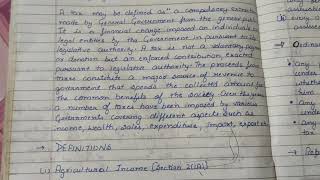 A tax may be defined as "a compulsory extraction
made by General Government from the general public
It is a financial charge imposed on individuals
legal entities by the Government in pursuant to
legislative authority. A tax is not a voluntary payment
or donation but an enforced contribution, exacted
pursuant to legislative authority. The proceeds from
taxes constitute a major source of revenue to
government that spends the collected amount for
the common benefits of the society. Over the years
a number of taxes have been imposed by various
Governments covering different aspects such as
income, wealth, sales, expenditure, import, export etc.
→ DEFINITIONS
(i) Agricultural Income (Section 2(1A))
(b)
→
• any
• any
• any
→